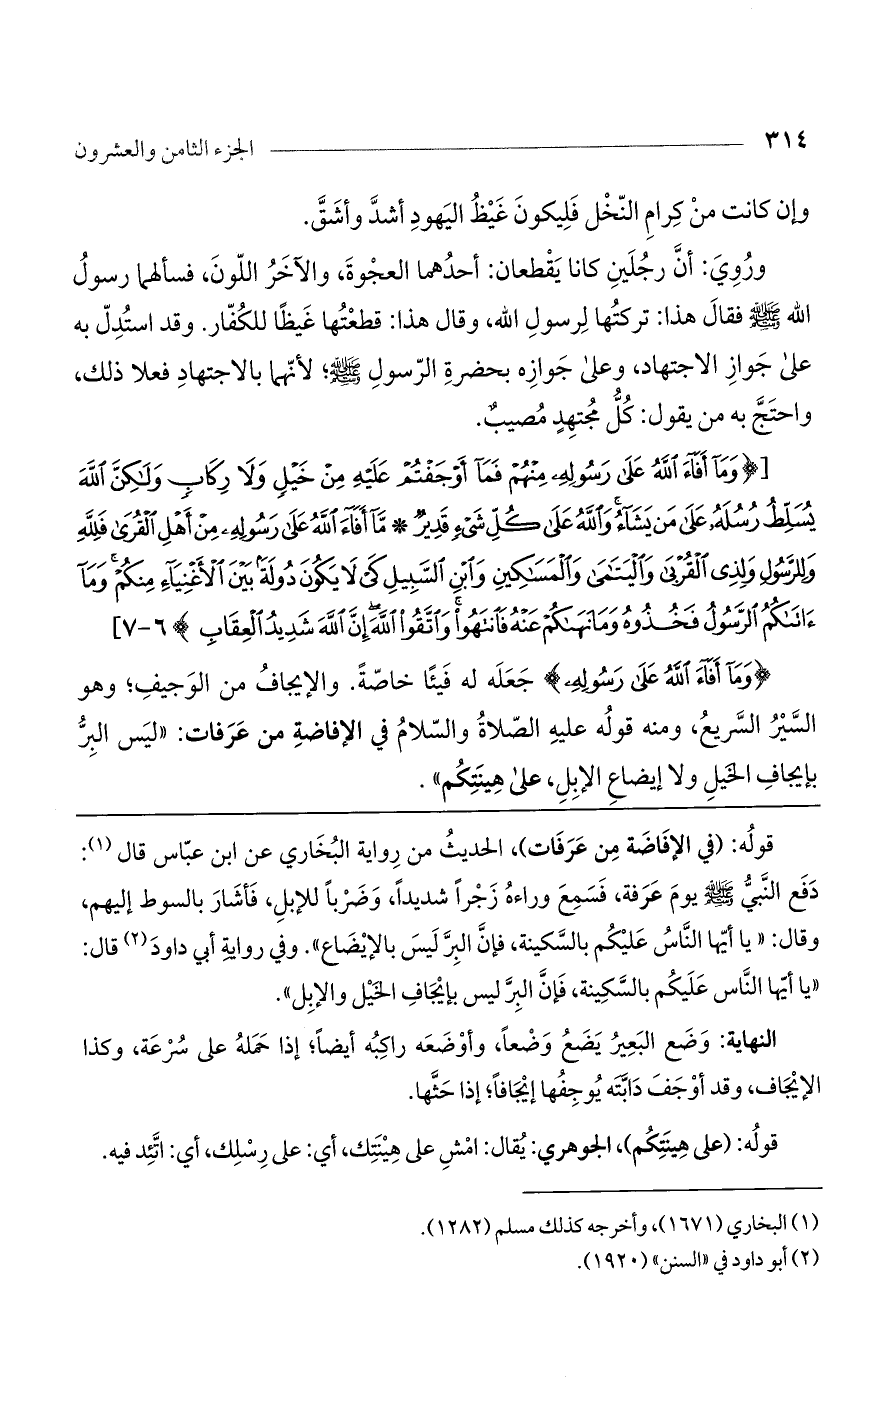 ٣١٤ ــــــــــــــــــــ الجزء الثامن والعشرون
وإن كانت منْ كِرامِ النّخْلِ فَلِيكونَ غَيْظُ اليَهودِ أشدَّ وأشَقَّ.
ورُوِيَ: أنَّ رجُلَينِ كانا يَقْطعان: أحدُهما العجْوةَ، والآخَرُ اللّونَ، فسألهما رسولُ
الله ﷺ فقالَ هذا: تركتُها لِرسولِ الله، وقال هذا: قطعْتُها غَيظًا للكُفّار. وقد استُدِلّ به
علىٰ جَوازِ الاجتهاد، وعلىٰ جَوازِه بحضرةِ الرّسولِ ﷺ؛ لأنّهما بالاجتهادِ فعلا ذلك،
واحتَجَّ به من يقول: كُلُّ مُجتهِدٍ مُصيبٌ.
[﴿وَمَآ أَفَآءَ ٱللَّهُ عَلَىٰ رَسُولِهِۦ مِنْهُمْ فَمَآ أَوْجَفْتُمْ عَلَيْهِ مِنْ خَيْلٍ وَلَا رِكَابٍ وَلَٰكِنَّ ٱللَّهَ
يُسَلِّطُ رُسُلَهُۥ عَلَىٰ مَن يَشَآءُ ۚ وَٱللَّهُ عَلَىٰ كُلِّ شَىْءٍ قَدِيرٌ * مَّآ أَفَآءَ ٱللَّهُ عَلَىٰ رَسُولِهِۦ مِنْ أَهْلِ ٱلْقُرَىٰ فَلِلَّهِ
وَلِلرَّسُولِ وَلِذِى ٱلْقُرْبَىٰ وَٱلْيَتَٰمَىٰ وَٱلْمَسَٰكِينِ وَٱبْنِ ٱلسَّبِيلِ كَىْ لَا يَكُونَ دُولَةًۢ بَيْنَ ٱلْأَغْنِيَآءِ مِنكُمْ ۚ وَمَآ
ءَاتَىٰكُمُ ٱلرَّسُولُ فَخُذُوهُ وَمَا نَهَىٰكُمْ عَنْهُ فَٱنتَهُوا۟ ۚ وَٱتَّقُوا۟ ٱللَّهَ ۖ إِنَّ ٱللَّهَ شَدِيدُ ٱلْعِقَابِ﴾ ٦-٧]
﴿وَمَآ أَفَآءَ ٱللَّهُ عَلَىٰ رَسُولِهِۦ﴾ جَعَلَه له فَيئًا خاصّةً. والإيجافُ من الوَجيفِ؛ وهو
السَّيْرُ السَّريعُ، ومنه قولُه عليهِ الصّلاةُ والسّلامُ في الإفاضةِ من عَرَفات: «ليَس البِرُّ
بإيجافِ الخَيلِ ولا إيضاعِ الإبلِ، علىٰ هِينَتِكُم» .
قولُه: (في الإفَاضَة مِن عَرَفات)، الحديثُ من رِواية البُخَاري عن ابن عبّاس قال (١):
دَفَع النَّبيُّ ﷺ يومَ عَرَفة، فَسَمِعَ وراءهُ زَجْراً شديداً، وَضَرْباً للإبلِ، فَأشَارَ بالسوط إليهم،
وقال: «يا أيّها النَّاسُ عَليكُم بالسَّكينة، فإنَّ البِرَّ لَيسَ بالإيْضَاع». وفي روايةِ أبي داودَ (٢) قال:
«يا أيّها النَّاس عَلَيكُم بالسَّكِينة، فَإنَّ البِرَّ ليس بإيْجَافِ الخَيْل والإبِل».
النهاية: وَضَع البَعِيرُ يَضَعُ وَضْعاً، وأوْضَعَه راكِبُه أيضاً؛ إذا حَمَلهُ على سُرْعَة، وكذا
الإيْجَاف، وقد أوْجَفَ دَابَّته يُوجِفُها إيْجَافاً؛ إذا حَثَّها.
قولُه: (على هِينَتِكُم)، الجوهري: يُقال: امْشِ على هِيْنَتِك، أي: على رِسْلِك، أي: اتَّئِد فيه.
(١) البخاري (١٦٧١)، وأخرجه كذلك مسلم (١٢٨٢).
(٢) أبو داود في «السنن» (١٩٢٠).